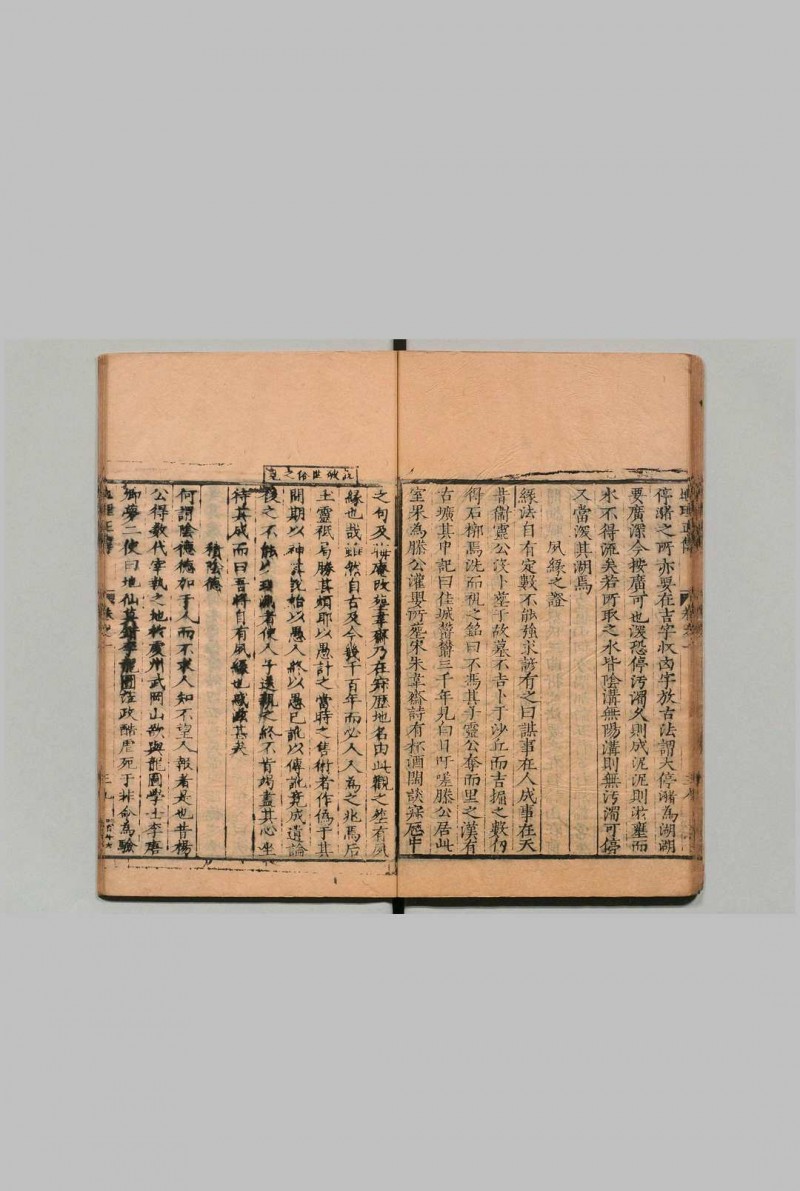 停潴之所亦要在吉字收凶字放古法謂大停潴為湖湖
要廣深今按廣可也深恐停汚濁久則成泥泥則淤壅而
水不得流矣若所取之水皆陰溝無陽溝則無汚濁可停
又當深其湖焉
夙緣之證
緣法自有定數不能強求諺有之曰謀事在人成事在天
昔衛靈公汶卜葬于故墓不吉卜于沙丘而吉掘之數仞
得石槨焉洗而視之銘曰不馮其子靈公奪而里之漢有
古壙其中記曰佳城鬱鬱三千年見白日吁嗟滕公居此
室果為滕公灌嬰所葬宋朱韋齋詩有杯酒闊談寐歷中
之句及晦庵改葬韋齋乃在寐歷地名由此觀之葬有夙
緣也哉雖然自古及今幾千百年而必人人為之兆焉后
土靈祇局勝其煩耶以愚計之當時之售術者作偽于其
間期以神其說始以愚人終以愚已訛以傳訛竟成遺論
後之不能 者使人子送親之終不肯竭盡其心坐
待其成而曰吾將自有夙緣也 甚矣
積陰德
何謂陰德德加于人而不求人知不望人報者是也昔楊
公得數代宰執之地於虔州武岡山欲與龍圖學士李唐
卿夢二使曰地仙莫 李龍圖 政酷虐死于非命為驗
註破世俗之
地理正
卷之一
三九